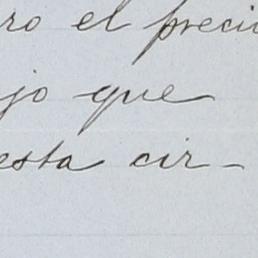 ro el preci
jo que
esta cir-